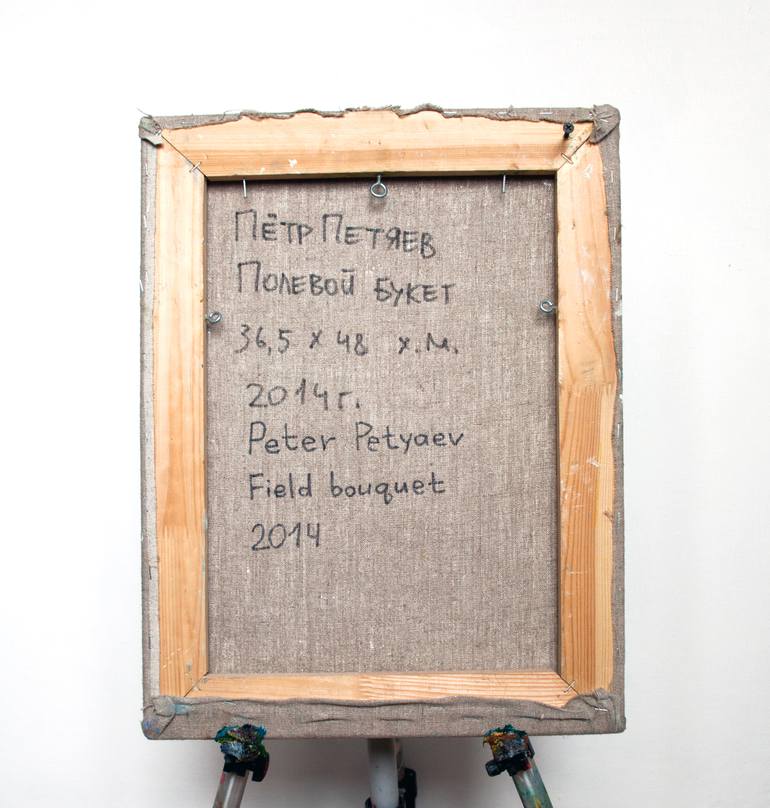 Пётр Петяев
Полевой букет
36,5 х 48 х.м.
2014г.
Peter Petyaev
Field bouquet
2014